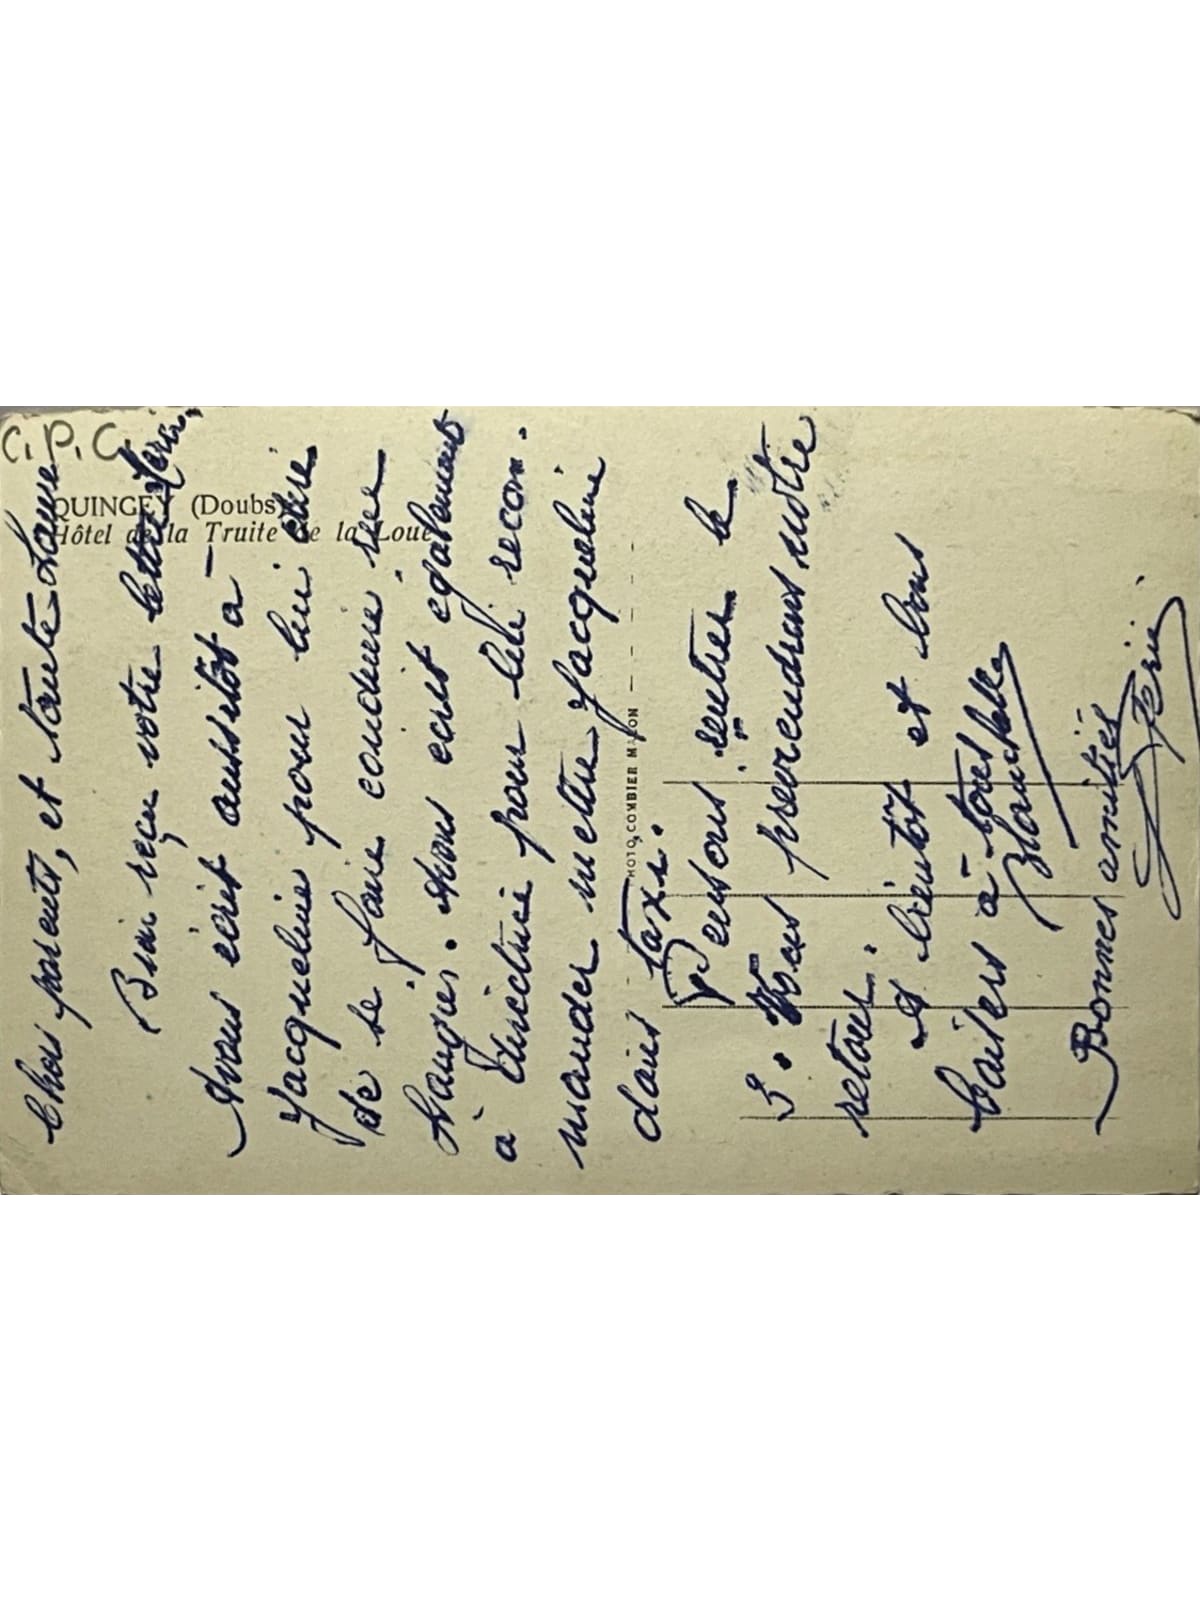 C.P.C.
QUINGEY (Doubs)
Hôtel de la Truite de la Loue
Chers parents, et tante
Bien reçu votre lettre hier,
Avons écrit aussitôt à
Jacqueline pour lui dire
de se faire conduire rue
. Avons écrit également
à pour lui recom.
mander mettre Jacqueline
dans taxi.
PHOTO, COMBIER MACON
Pensons rentrer le
3. Vous préviendrons notre
retour.
A bientôt et bons
baisers à tous
Bonnes amitiés